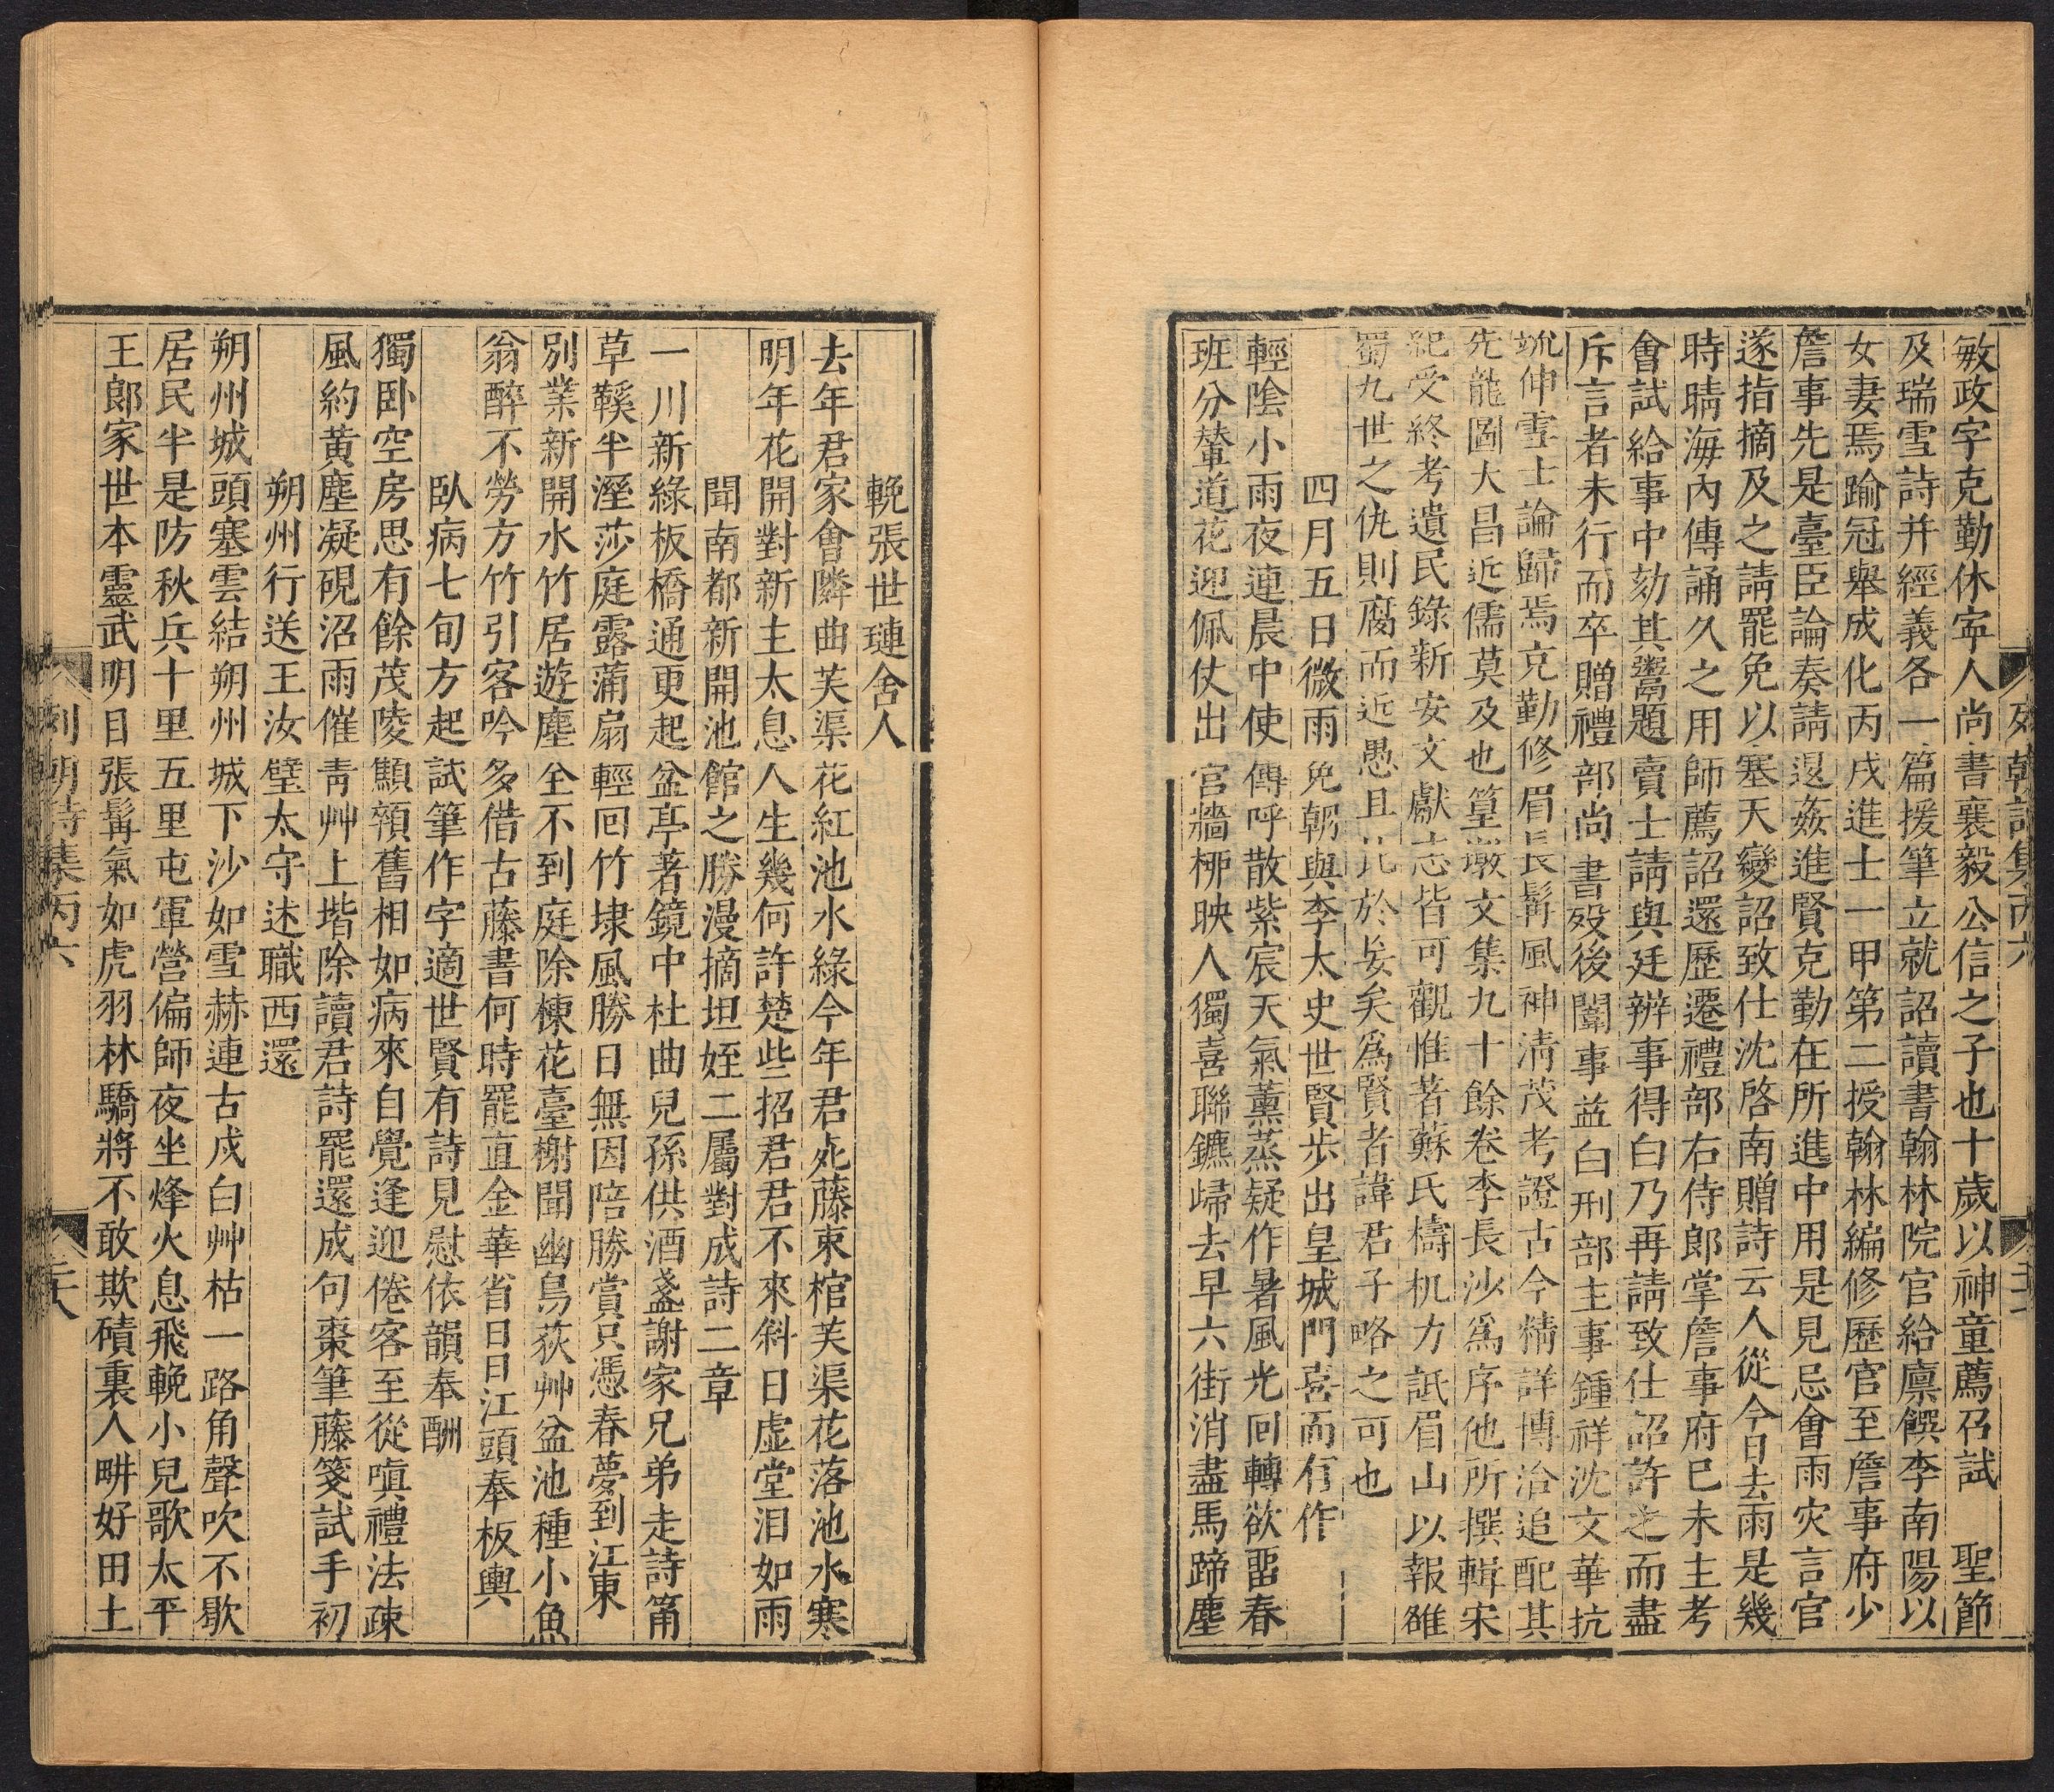 敏政字克勤休寗人尚書襄毅公信之子也十歲以神童薦召試　聖節
及瑞雪詩并經義各一篇援筆立就詔讀書翰林院官給廪饌李南陽以
女妻焉踰冠舉成化丙戌進士一甲第二授翰林編修歷官至詹事府少
詹事先是臺臣論奏請退姦進賢克勤在所進中用是見忌會雨灾言官
遂指摘及之請罷免以塞天變詔致仕沈啓南贈詩云人從今日去雨是幾
時晴海內傳誦久之用師薦詔還歷遷禮部右侍郎掌詹事府巳未主考
會試給事中劾其鬻題賣士請與廷辨事得白乃再請致仕詔許之而盡
斥言者未行而卒贈禮部尚書歿後闈事益白刑部主事鍾祥沈文華抗
疏伸雪士論歸焉克勤修眉長髯風神清茂考證古今精詳博洽追配其
先龍圖大昌近儒莫及也篁墩文集九十餘卷李長沙爲序他所撰輯宋
紀受終考遺民錄新安文獻志皆可觀惟著蘇氏檮杌力詆眉山以報雒
蜀九世之仇則腐而近愚且比於妄矣爲賢者諱君子略之可也
四月五日微雨免朝與李太史世賢步出皇城門喜而有作
輕陰小雨夜連晨中使傳呼散紫宸天氣薰蒸疑作暑風光回轉欲畱春
班分輦道花迎佩仗出宮牆桺映人獨喜聯鑣歸去早六街消盡馬蹄塵
列朝詩集丙六
輓張世璉舍人
去年君家會隣曲芙渠花紅池水綠今年君死藤束棺芙渠花落池水寒
明年花開對新主太息人生幾何許楚些招君君不來斜日虛堂泪如雨
聞南都新開池館之勝漫摘坦姪二屬對成詩二章
一川新綠板橋通更起盆亭著鏡中杜曲兒孫供酒盞謝家兄弟走詩筩
草鞵半溼莎庭露蒲扇輕回竹埭風勝日無因陪勝賞只憑春夢到江東
別業新開水竹居遊塵全不到庭除楝花臺榭聞幽鳥荻艸盆池種小魚
翁醉不勞方竹引客吟多借古藤書何時罷直金華省日日江頭奉板輿
臥病七旬方起試筆作字適世賢有詩見慰依韻奉酬
獨卧空房思有餘茂陵顦顇舊相如病來自覺逢迎倦客至從嗔禮法疎
風約黃塵凝硯沼雨催青艸上堦除讀君詩罷還成句棗筆藤箋試手初
朔州行送王汝璧太守述職西還
朔州城頭塞雲結朔州城下沙如雪赫連古戍白艸枯一路角聲吹不歇
居民半是防秋兵十里五里屯軍營偏師夜坐烽火息飛輓小兒歌太平
王郎家世本靈武明目張髯氣如虎羽林驕將不敢欺磧裏人畊好田土
列朝詩集丙六